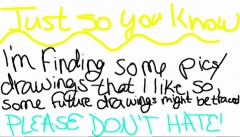 Just so you know
I'm finding some pics/
drawings that I like so
some future drawings might be traced
PLEASE DON'T HATE!